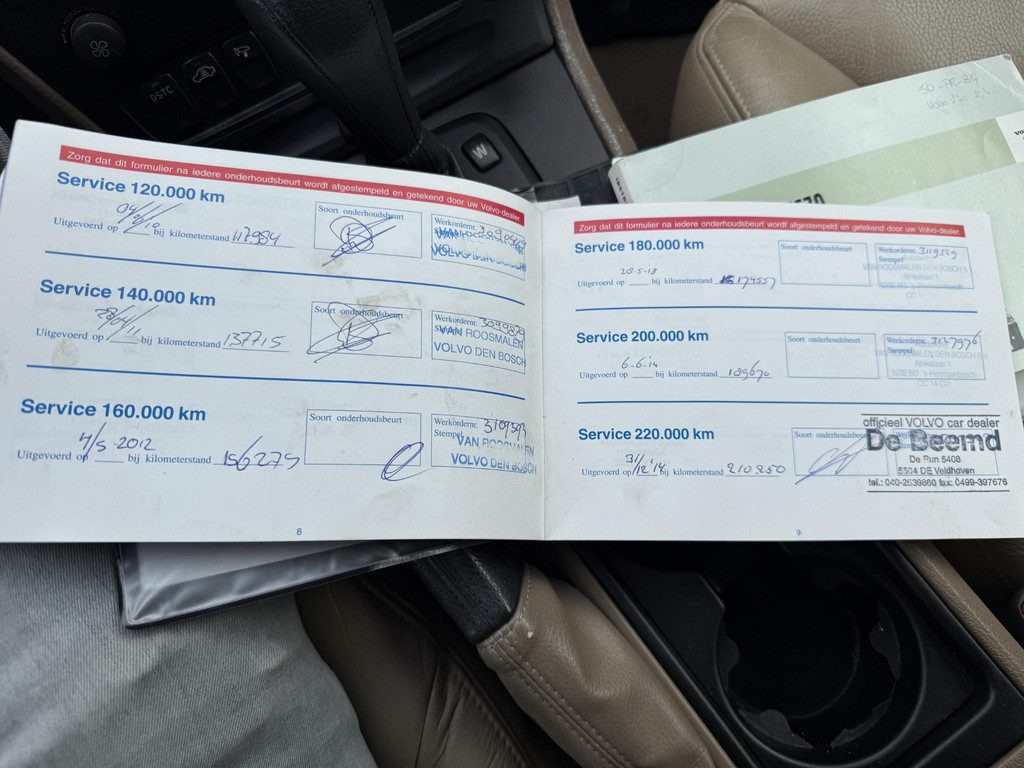 DSTC
W
50-PR-BG
Volvo V70 2,4
Zorg dat dit formulier na iedere onderhoudsbeurt wordt afgestempeld en getekend door uw Volvo-dealer.
Service 120.000 km
Uitgevoerd op bij kilometerstand 117984
Soort onderhoudsbeurt
Werkordernr.
VOLVO DEN BOSCH
Service 140.000 km
Uitgevoerd op 28/04/11 bij kilometerstand 137715
Soort onderhoudsbeurt
Werkordernr. 3099829
VAN ROOSMALEN
VOLVO DEN BOSCH
Service 160.000 km
Uitgevoerd op 4/5 2012 bij kilometerstand 156279
Soort onderhoudsbeurt
Werkordernr.
Stempel
VAN ROOSMALEN
VOLVO DEN BOSCH
8
Zorg dat dit formulier na iedere onderhoudsbeurt wordt afgestempeld en getekend door uw Volvo-dealer.
Service 180.000 km
Uitgevoerd op 28-5-13 bij kilometerstand 174557
Soort onderhoudsbeurt
Werkordernr. 3119529
Stempel
VAN ROOSMALEN DEN BOSCH B.V.
Afrikalaan 1
Service 200.000 km
Uitgevoerd op 6-6-14 bij kilometerstand 189670
Soort onderhoudsbeurt
Werkordernr. 3127976
Stempel
VAN ROOSMALEN DEN BOSCH B.V.
Afrikalaan 1
5232 BD 's-Hertogenbosch
Service 220.000 km
Uitgevoerd op 31/12 '14 bij kilometerstand 210250
Soort onderhoudsbeurt
officieel VOLVO car dealer
De Beemd
De Run 5408
5504 DE Veldhoven
tel.: 040-2539860 fax: 0499-397676
9